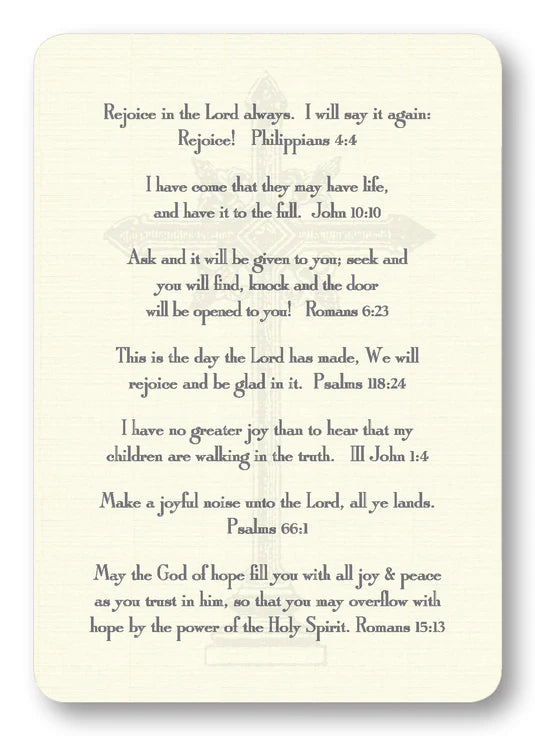 Rejoice in the Lord always. I will say it again:
Rejoice! Philippians 4:4
I have come that they may have life,
and have it to the full. John 10:10
Ask and it will be given to you; seek and
you will find, knock and the door
will be opened to you! Romans 6:23
This is the day the Lord has made, We will
rejoice and be glad in it. Psalms 118:24
I have no greater joy than to hear that my
children are walking in the truth. III John 1:4
Make a joyful noise unto the Lord, all ye lands.
Psalms 66:1
May the God of hope fill you with all joy & peace
as you trust in him, so that you may overflow with
hope by the power of the Holy Spirit. Romans 15:13